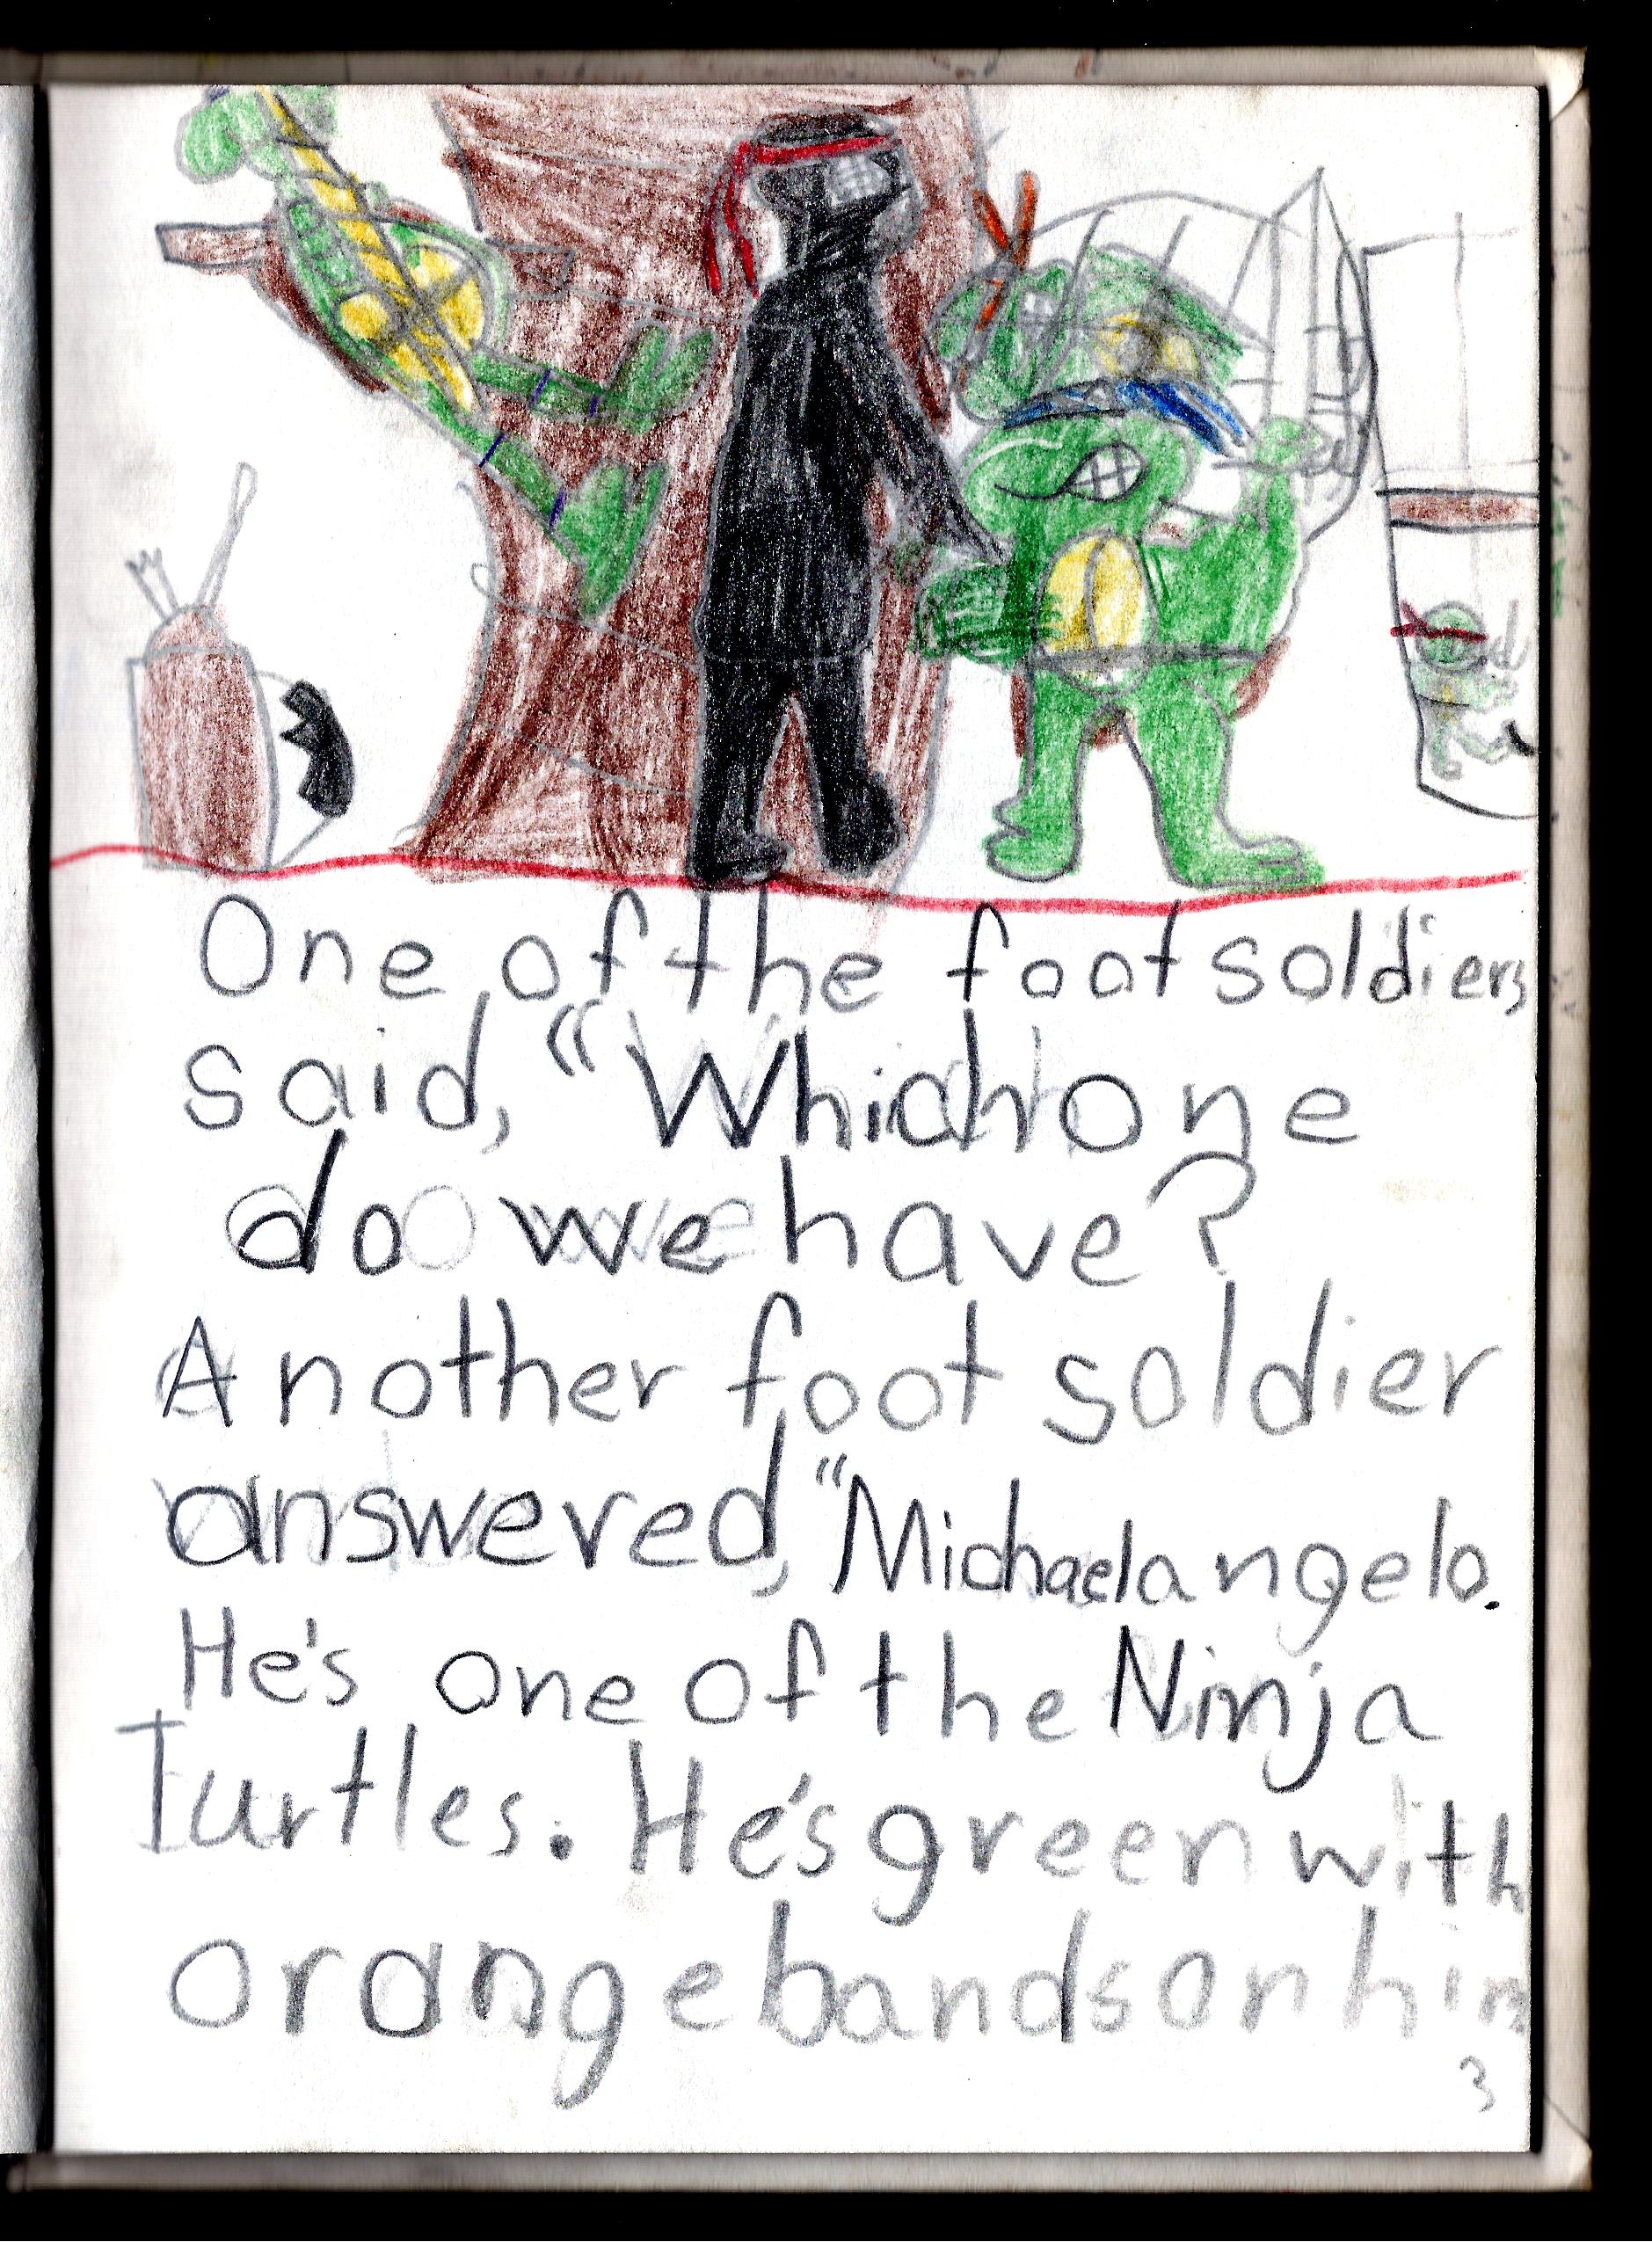 One of the foot soldiers
said, "Which one
do we have?
Another foot soldier
answered, "Michaelangelo.
He's one of the Ninja
Turtles. He's green with
orange bands on him
3